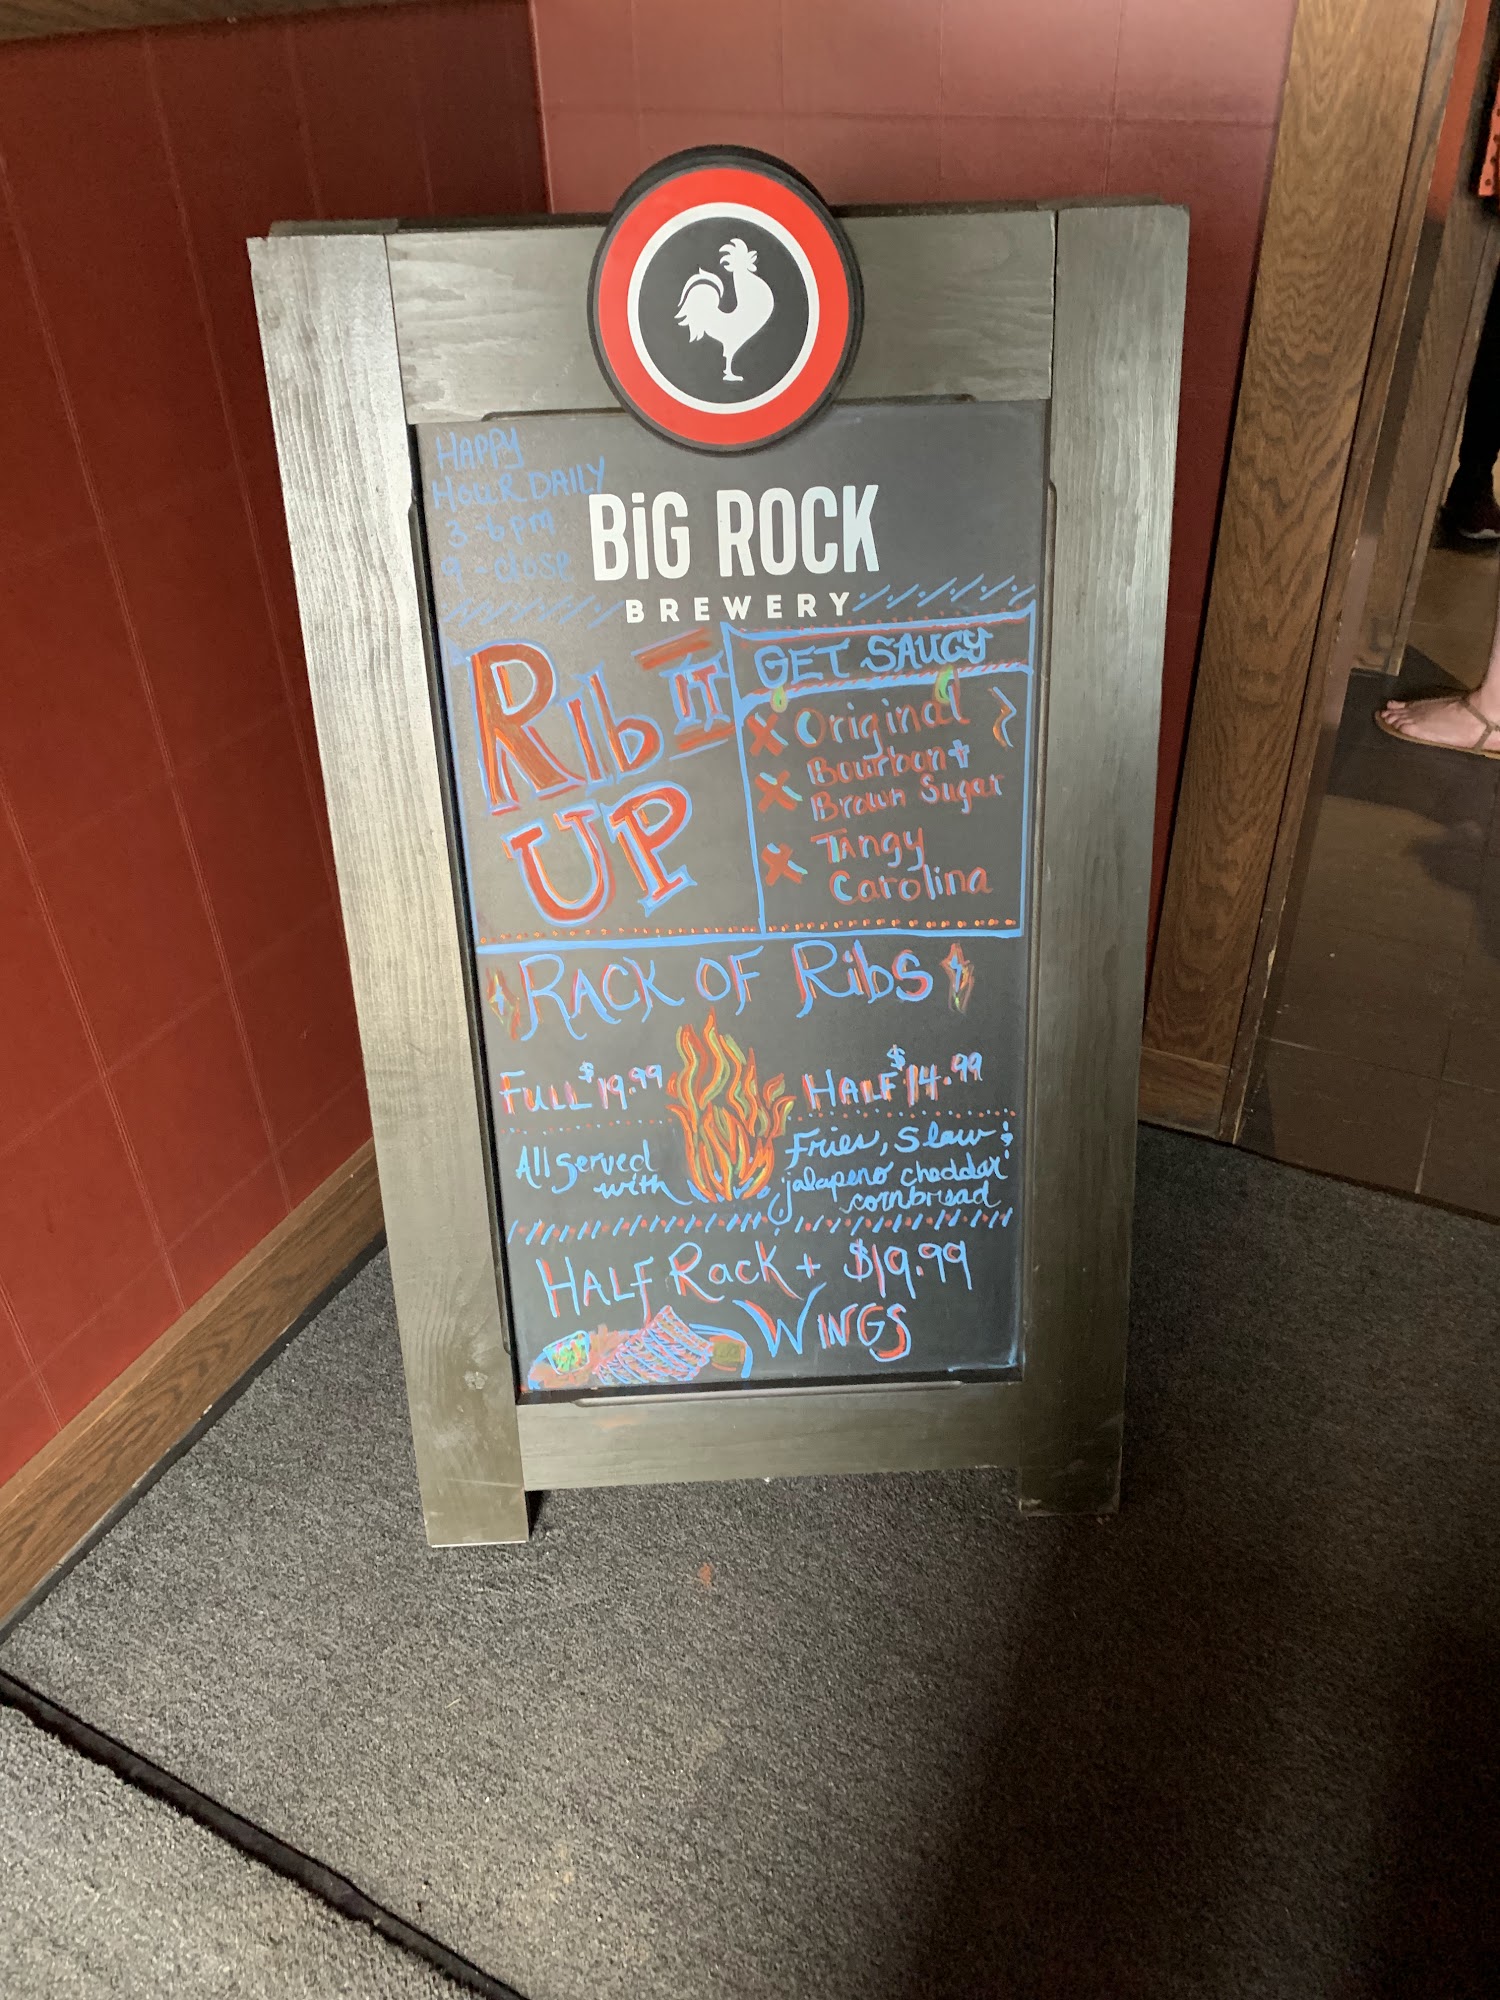 HAPPY
HOUR DAILY
3-6pm
9-close
BiG ROCK
BREWERY
Rib IT
UP
GET SAUCY
Original
Bourbon +
Brown Sugar
Tangy
Carolina
RACK OF RibS
FULL $19.99
HALF $14.99
All served
with
Fries, Slaw &
jalapeno cheddar
cornbread
HALF Rack + $19.99
WINGS